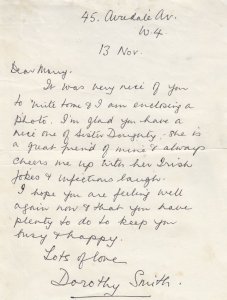 45. Avondale Av.
W.4
13 Nov.
Dear Mary.
It was very nice of you
to write to me & I am enclosing a
photo. I'm glad you have a
nice one of Sister Doughty - she is
a great friend of mine & always
cheers me up with her Irish
jokes & infectious laugh.
I hope you are feeling well
again now & that you have
plenty to do to keep you
busy & happy.
Lots of love
Dorothy Smith.